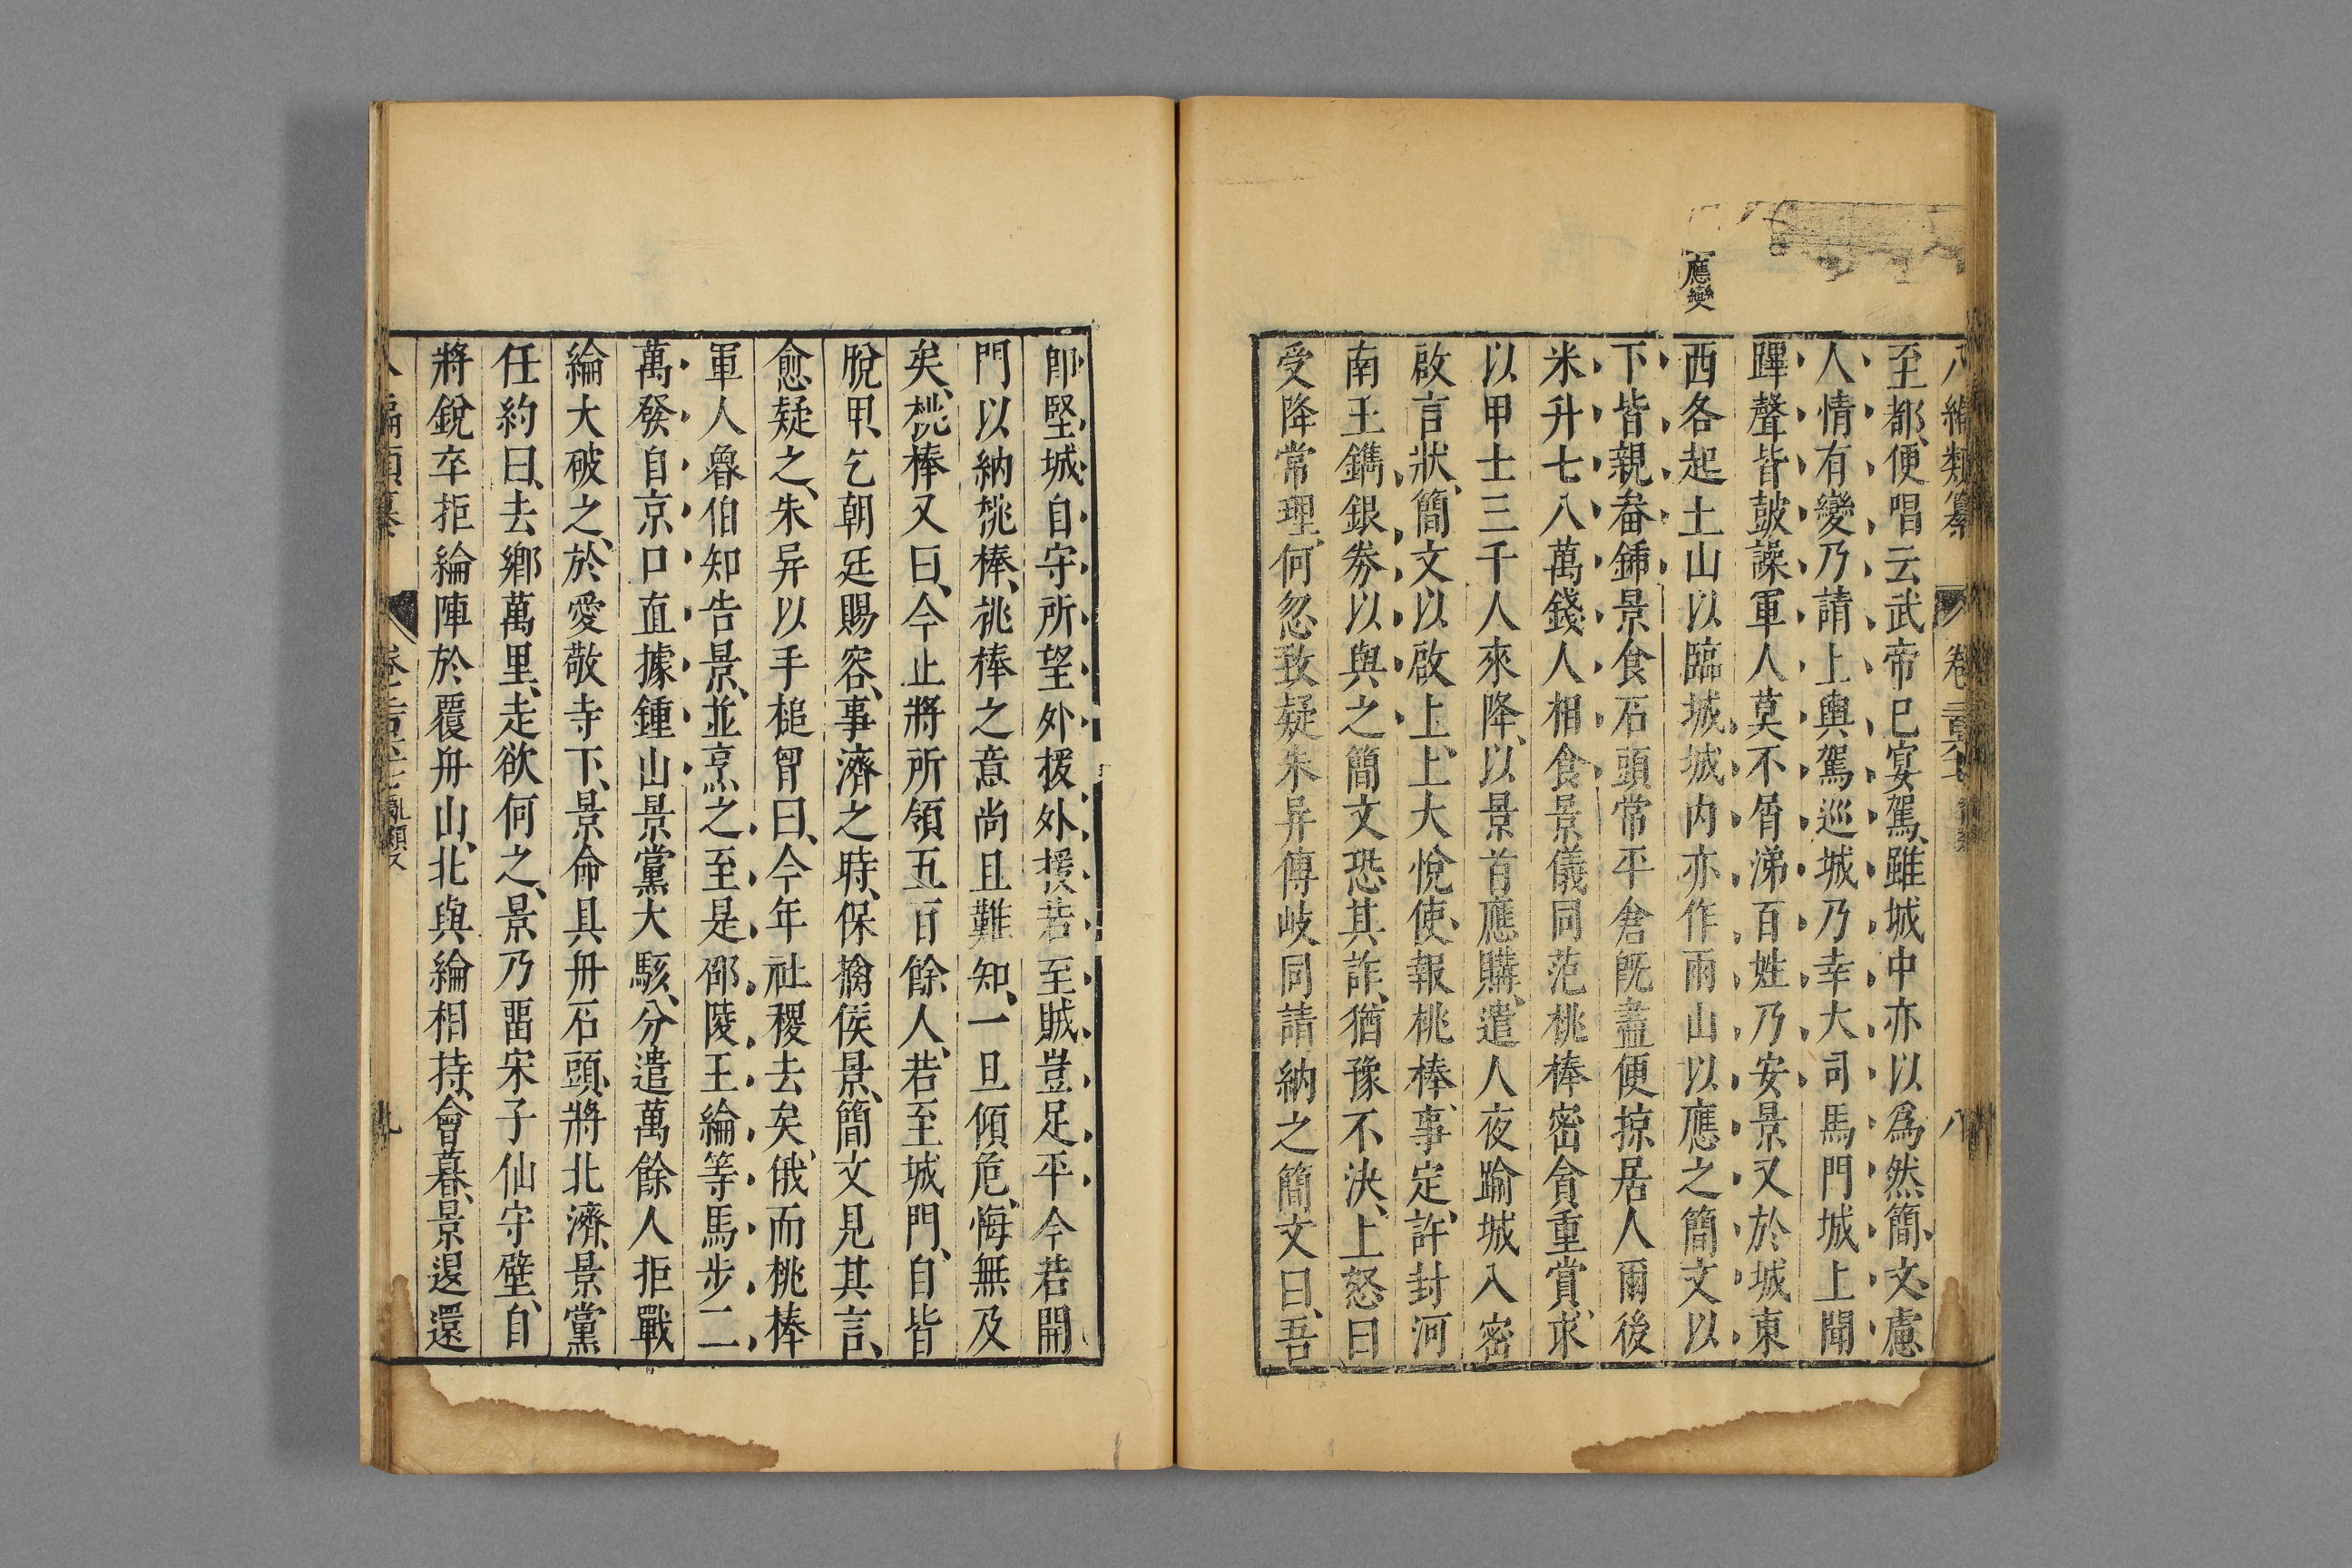 八編類纂
卷
八
至都、便唱云武帝已宴駕、雖城中亦以爲然簡文慮
人情有變乃請上輿駕巡城乃幸大司馬門城上聞
蹕聲皆鼓譟軍人莫不屑涕百姓乃安景又於城東
應變
西各起土山以臨城城内亦作兩山以應之簡文以
下皆親畚鍤景食石頭常平倉既盡便掠居人爾後
米升七八萬錢人相食景儀同范桃棒密貪重賞、求
以甲士三千人來降、以景首應購、遣人夜踰城入密
啟言狀、簡文以啟上、上大悅使報桃棒、事定、許封河
南王鐫銀劵以與之簡文恐其詐、猶豫不決、上怒曰
受降常理、何忽致疑朱异傅岐同請納之簡文曰、吾
即堅城自守所望外援外援若至賊豈足平今若開
門以納桃棒、桃棒之意尚且難知、一旦傾危、悔無及
矣、桃棒又曰、今止將所領五百餘人、若至城門、自皆
脫甲、乞朝廷賜容、事濟之時、保擒侯景、簡文見其言、
愈疑之、朱异以手槌胷曰、今年社稷去矣、俄而桃棒
軍人魯伯知告景、並烹之、至是邵陵王綸等馬步二
萬發自京口直據鍾山景黨大駭、分遣萬餘人拒戰
綸大破之、於愛敬寺下、景命具舟石頭、將北濟、景黨
任約曰、去鄉萬里、走欲何之、景乃畱宋子仙守壁、自
將銳卒拒綸陣於覆舟山、北與綸相持、會暮、景退還